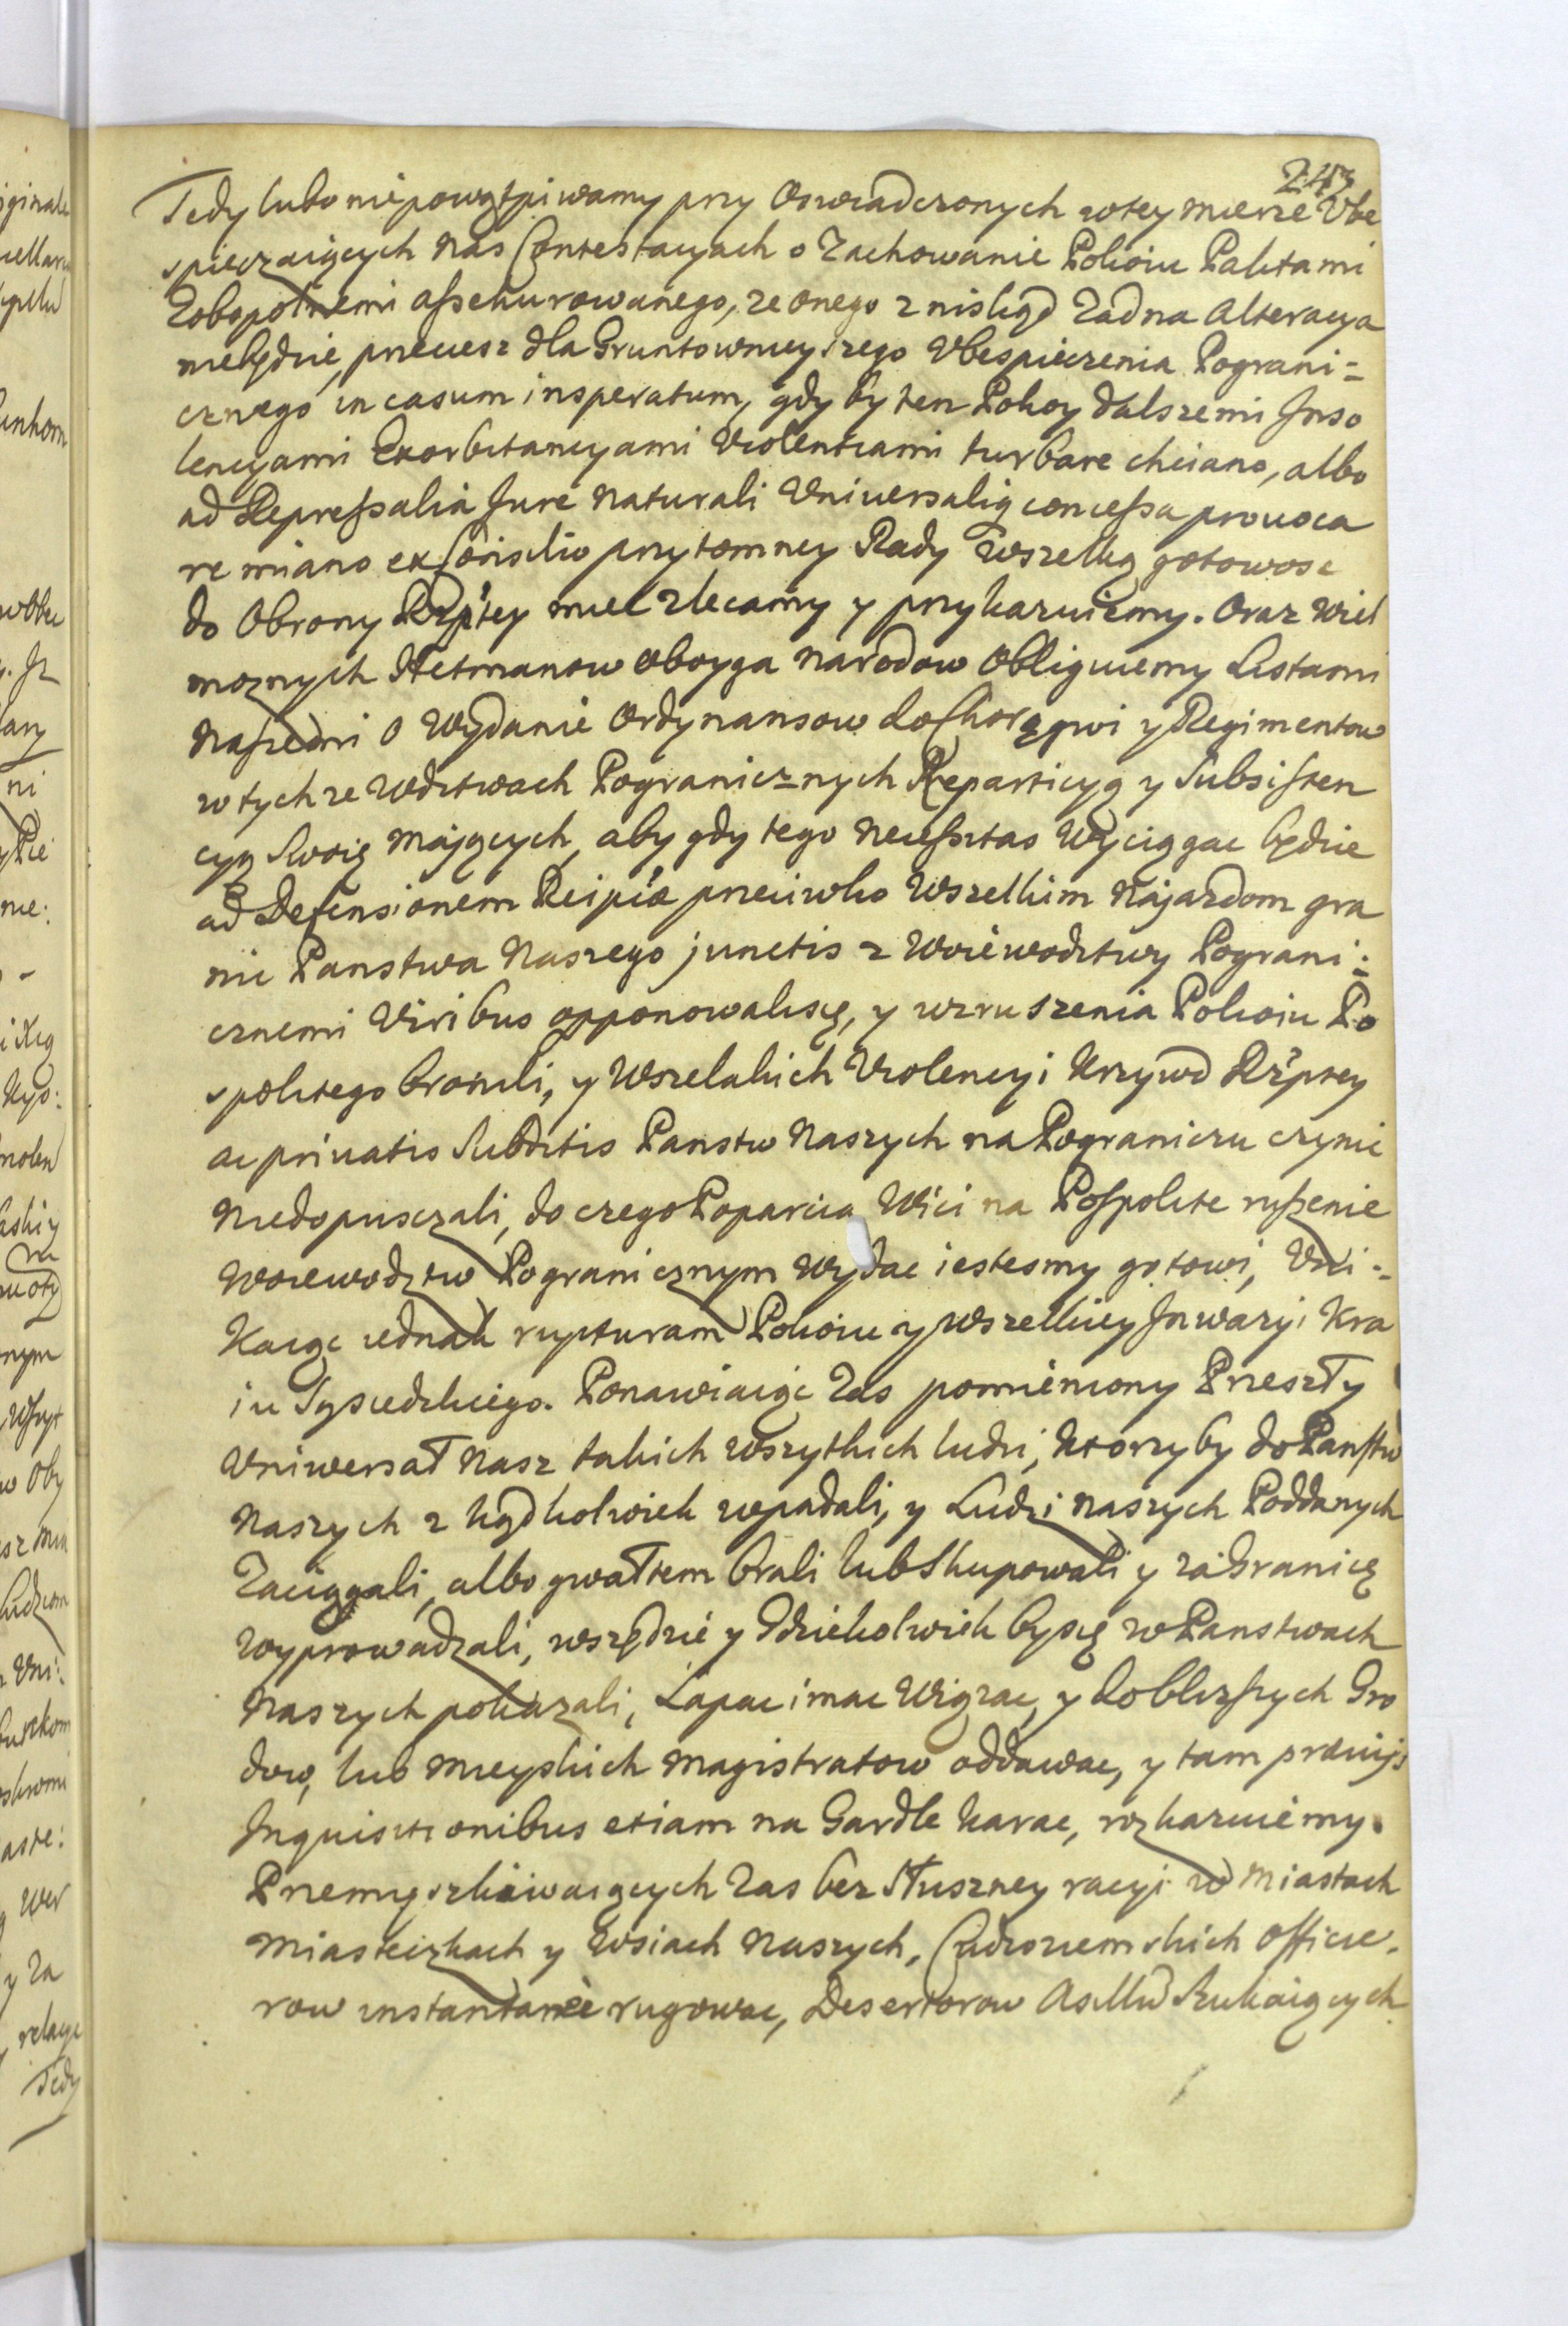 243
Tedy lubo nie powątpiwamy przy Oswiadczonych w tey mierze Vbe
spieczaiących Nas Contestacyach o Zachowanie Pokoiu Paktami
Zobopolnemi assekurowanego, ze onego z niskąd Zadna Alteracya
niebędzie, przeciesz dla Gruntownieyszego Vbespieczenia Pograni=
cznego in casum insperatum, gdy by ten Pokoy dalszemi Inso
lencyami Exorbitancyami Violentiami turbare chciano, albo
ad Repressalia Jure Naturali Vniversaliq concessa prouoca
re miano ex Consilio przytomney Rady Wszelką gotowosc
do Obrony Rzptey miec zlecamy y przykazuiemy. Oraz Wiel
moznych Hetmanow oboyga Narodow Obliguiemy Listami
Naszemi o Wydanie Ordynansow do Chorągwi y Regimentow
w tychze Wdztwach Pogranicznych Reparticyą y Subsisten
cyą Swoię Maiących, aby gdy tego Necessitas Wyciągac będzie
ad Defensionem Reipcae przeciwko Wszelkim Najazdom gra
nic Panstwa Naszego junctis z Woiewodztwy Pograni=
cznemi Viribus opponowali się, y wzruszenia Pokoiu Po
spolitego bronili, y Wszelakich Violencyi Krzywd Rzptey
ac priuatis Subditis Panstw Naszych na Pograniczu czynic
Niedopusczali, do czego Poparcia Wici na Pospolite ruszenie
Woiewodztw Pogranicznym Wydac iestesmy gotowi, Vni=
Kaiąc iednak rupturam Pokoiu y Wszelkiey Inwazyi Kra
iu Sąsiedzkiego. Ponawiaiąc Zas pomieniony Przeszły
Vniwersał Nasz takich Wszytkich ludzi, Ktorzy by do Panstw
Naszych z kądkolwiek wpadali, y Ludzi Naszych Poddanych
Zaciągali, albo gwałtem brali lub Skupowali y za Granicę
Wyprowadzali, wszędzie y Gdziekolwiek by się w Panstwach
Naszych pokazali, Łapac imac Wiązac, y do blizszych Gro
dow, lub Mieyskich Magistratow oddawac, y tam praeuijs
Inquisitionibus etiam na Gardle karac, rozkazuiemy.
Przemyszkiwaiących Zas bez Słuszney racyi w Miastach
Miasteczkach y Wsiach Naszych, Cudzoziemskich Officie=
row instantanee rugowac, Desertorow Asillu Szukaiących